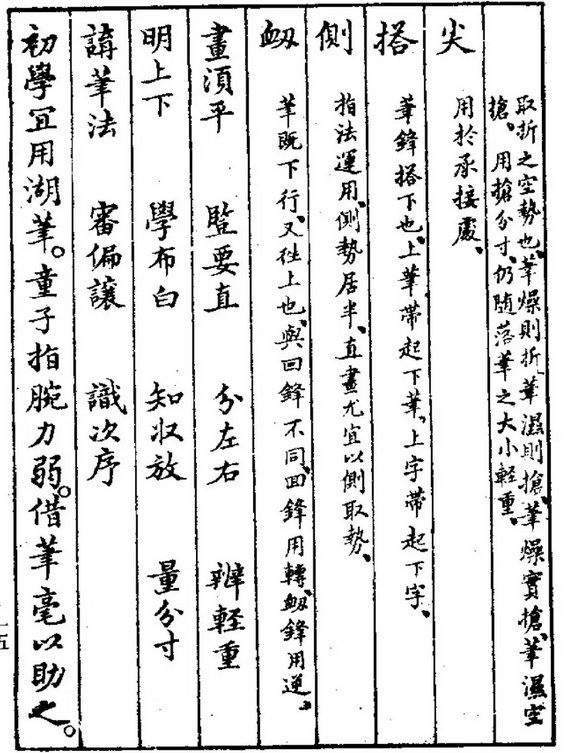 取折之空勢也、筆燥則折、筆濕則搶、筆燥實搶、筆濕空
搶。用搶分寸、仍随落筆之大小輕重、
尖
用於承接處、
搭
筆鋒搭下也、上筆帶起下筆、上字帶起下字、
側
指法運用、側勢居半、直畫尤宜以側取勢、
衂
筆既下行、又往上也、與回鋒不同、回鋒用轉、衂鋒用逆。
畫湏平 豎要直 分左右 辨輕重
明上下 學布白 知收放 量分寸
講筆法 審偏讓 識次序
初學宜用湖筆。童子指腕力弱。借筆毫以助之。
五